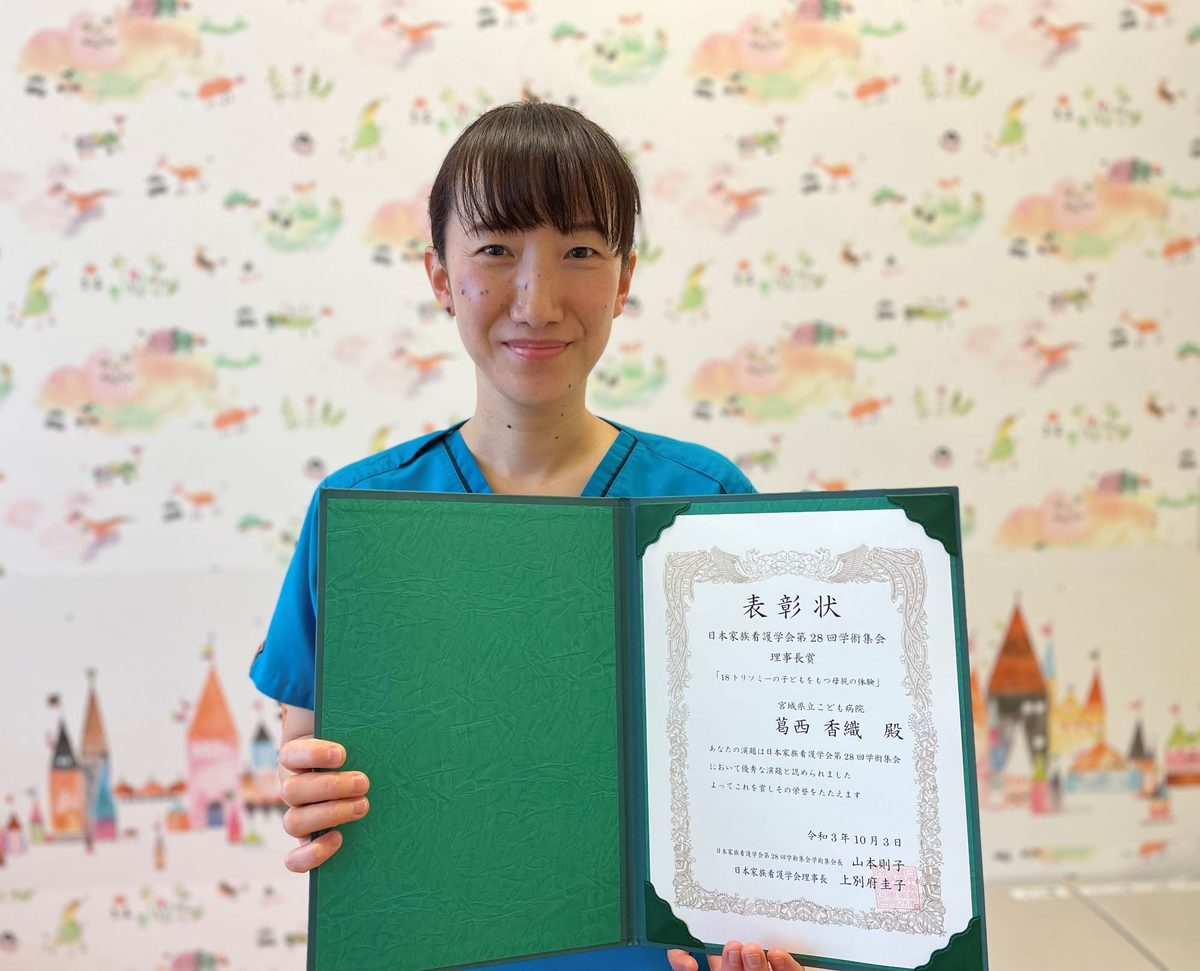 表彰状
日本家族看護学会第28回学術集会
理事長賞
「18トリソミーの子どもをもつ母親の体験」
宮城県立こども病院
葛西 香織 殿
あなたの演題は日本家族看護学会第28回学術集会
において優秀な演題と認められました
よってこれを賞しその栄誉をたたえます
令和3年10月3日
日本家族看護学会第28回学術集会学術集会長 山本則子
日本家族看護学会理事長 上別府圭子